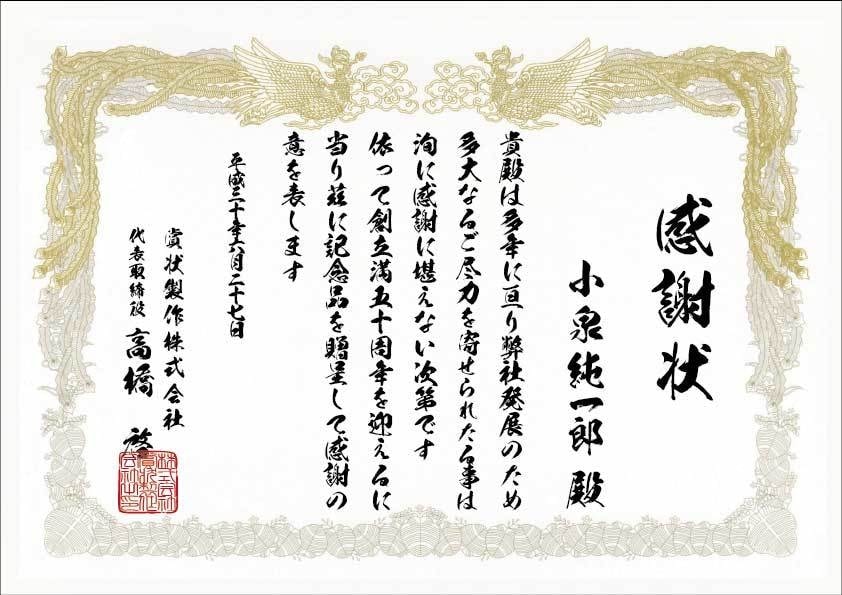 感謝状
小泉純一郎 殿
貴殿は多年に亘り弊社発展のため
多大なるご尽力を寄せられたる事は
洵に感謝に堪えない次第です
依って創立満五十周年を迎えるに
当り茲に記念品を贈呈して感謝の
意を表します
平成三十年六月二十七日
賞状製作株式会社
代表取締役 高橋 啓